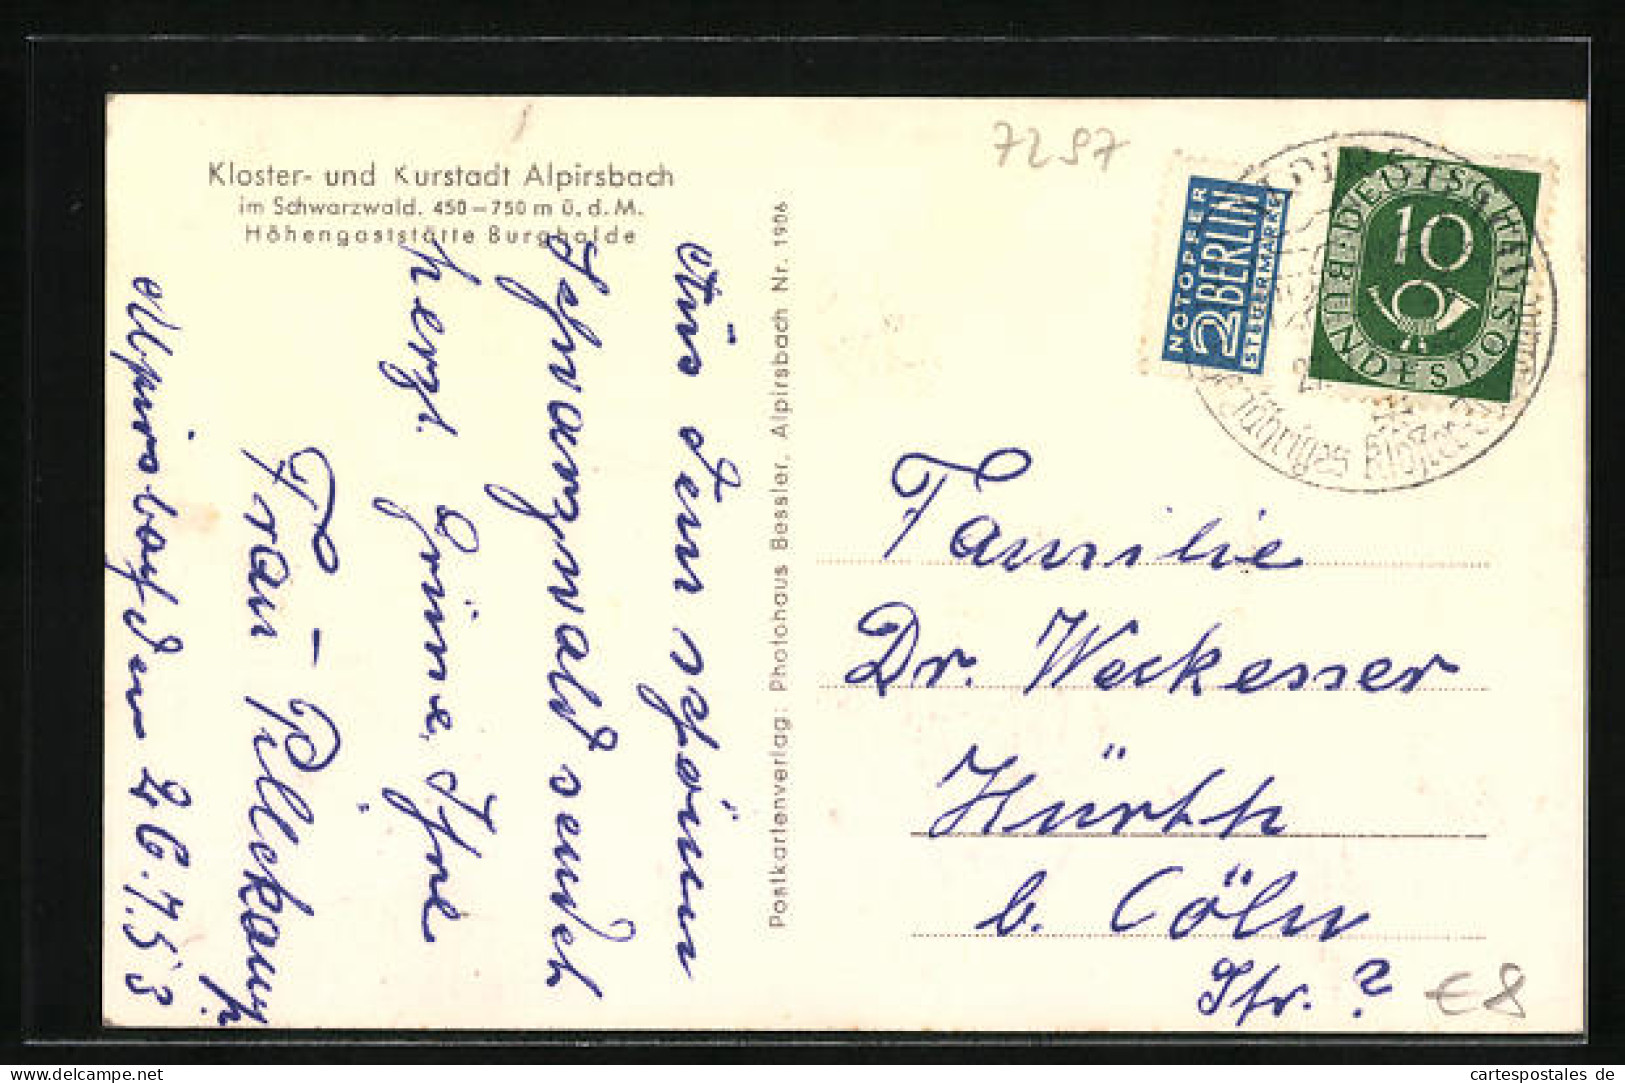 7297
Kloster- und Kurstadt Alpirsbach
im Schwarzwald. 450–750 m ü. d. M.
Höhengaststätte Burghalde
Alpirsbach den 26.7.53
Aus dem schönen
Schwarzwald sendet
herzl. Grüsse, Ihre
Frau Pillekamp
Postkartenverlag: Photohaus Bessler, Alpirsbach Nr. 1906
NOTOPFER
2 BERLIN
STEUERMARKE
DEUTSCHE BUNDESPOST
10
jähriges Kloster
Familie
Dr. Weckesser
Hürth
b. Cöln
Str. ?
€8
cartespostales de
www.delcampe.net